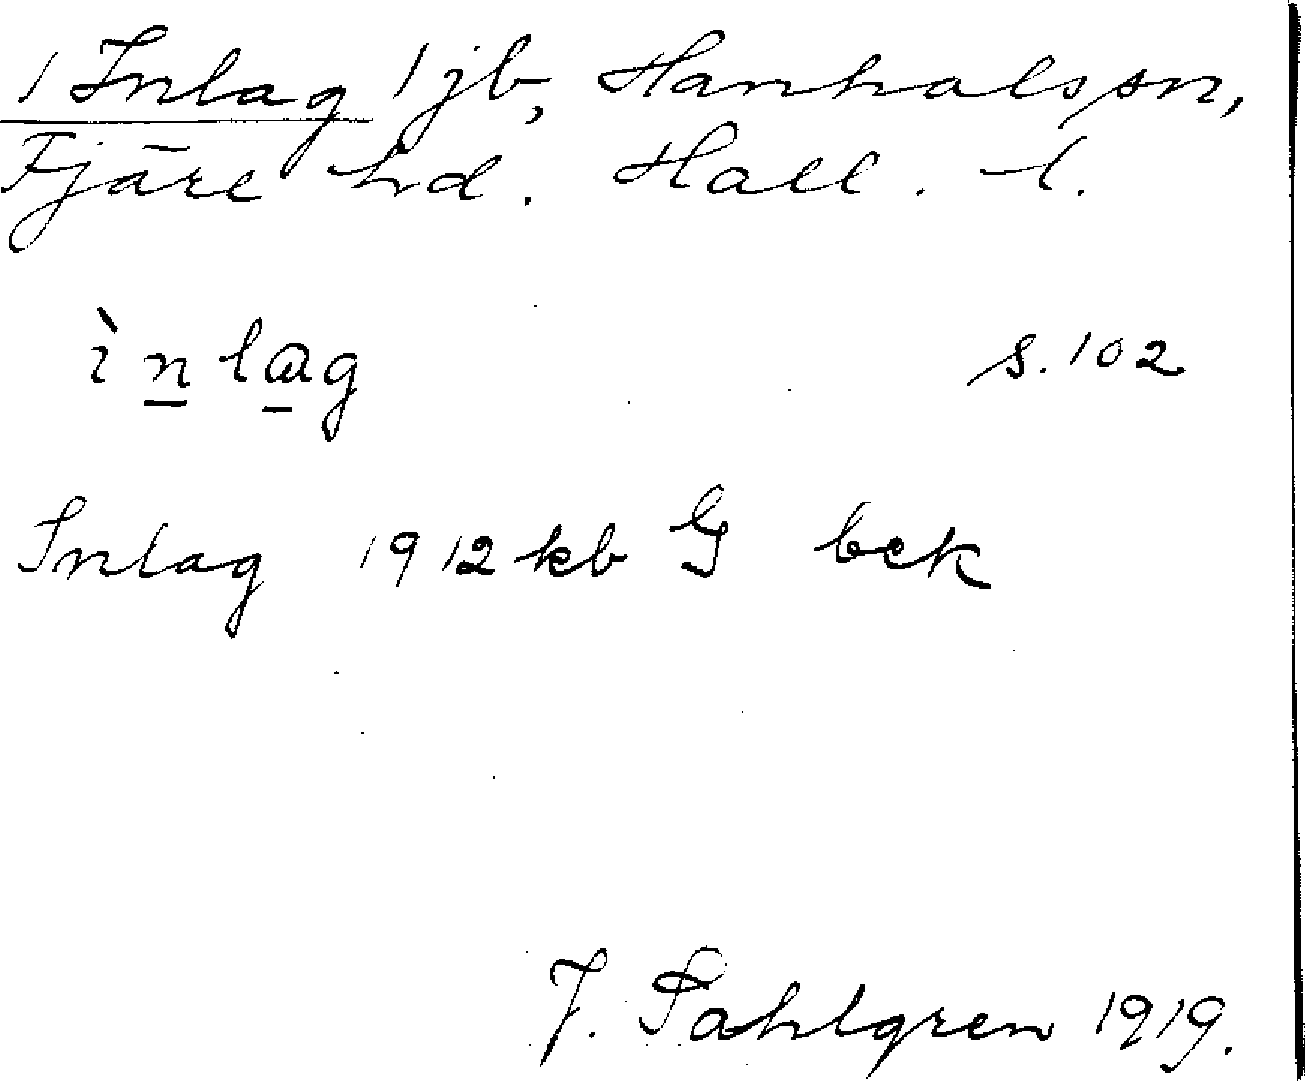 1 Inlag 1 jb, Hanhals sn,
Fjäre hd. Hall. l.
ìn̲la̲g s. 102
Inlag 1912 kb G bek
J. Sahlgren 1919.